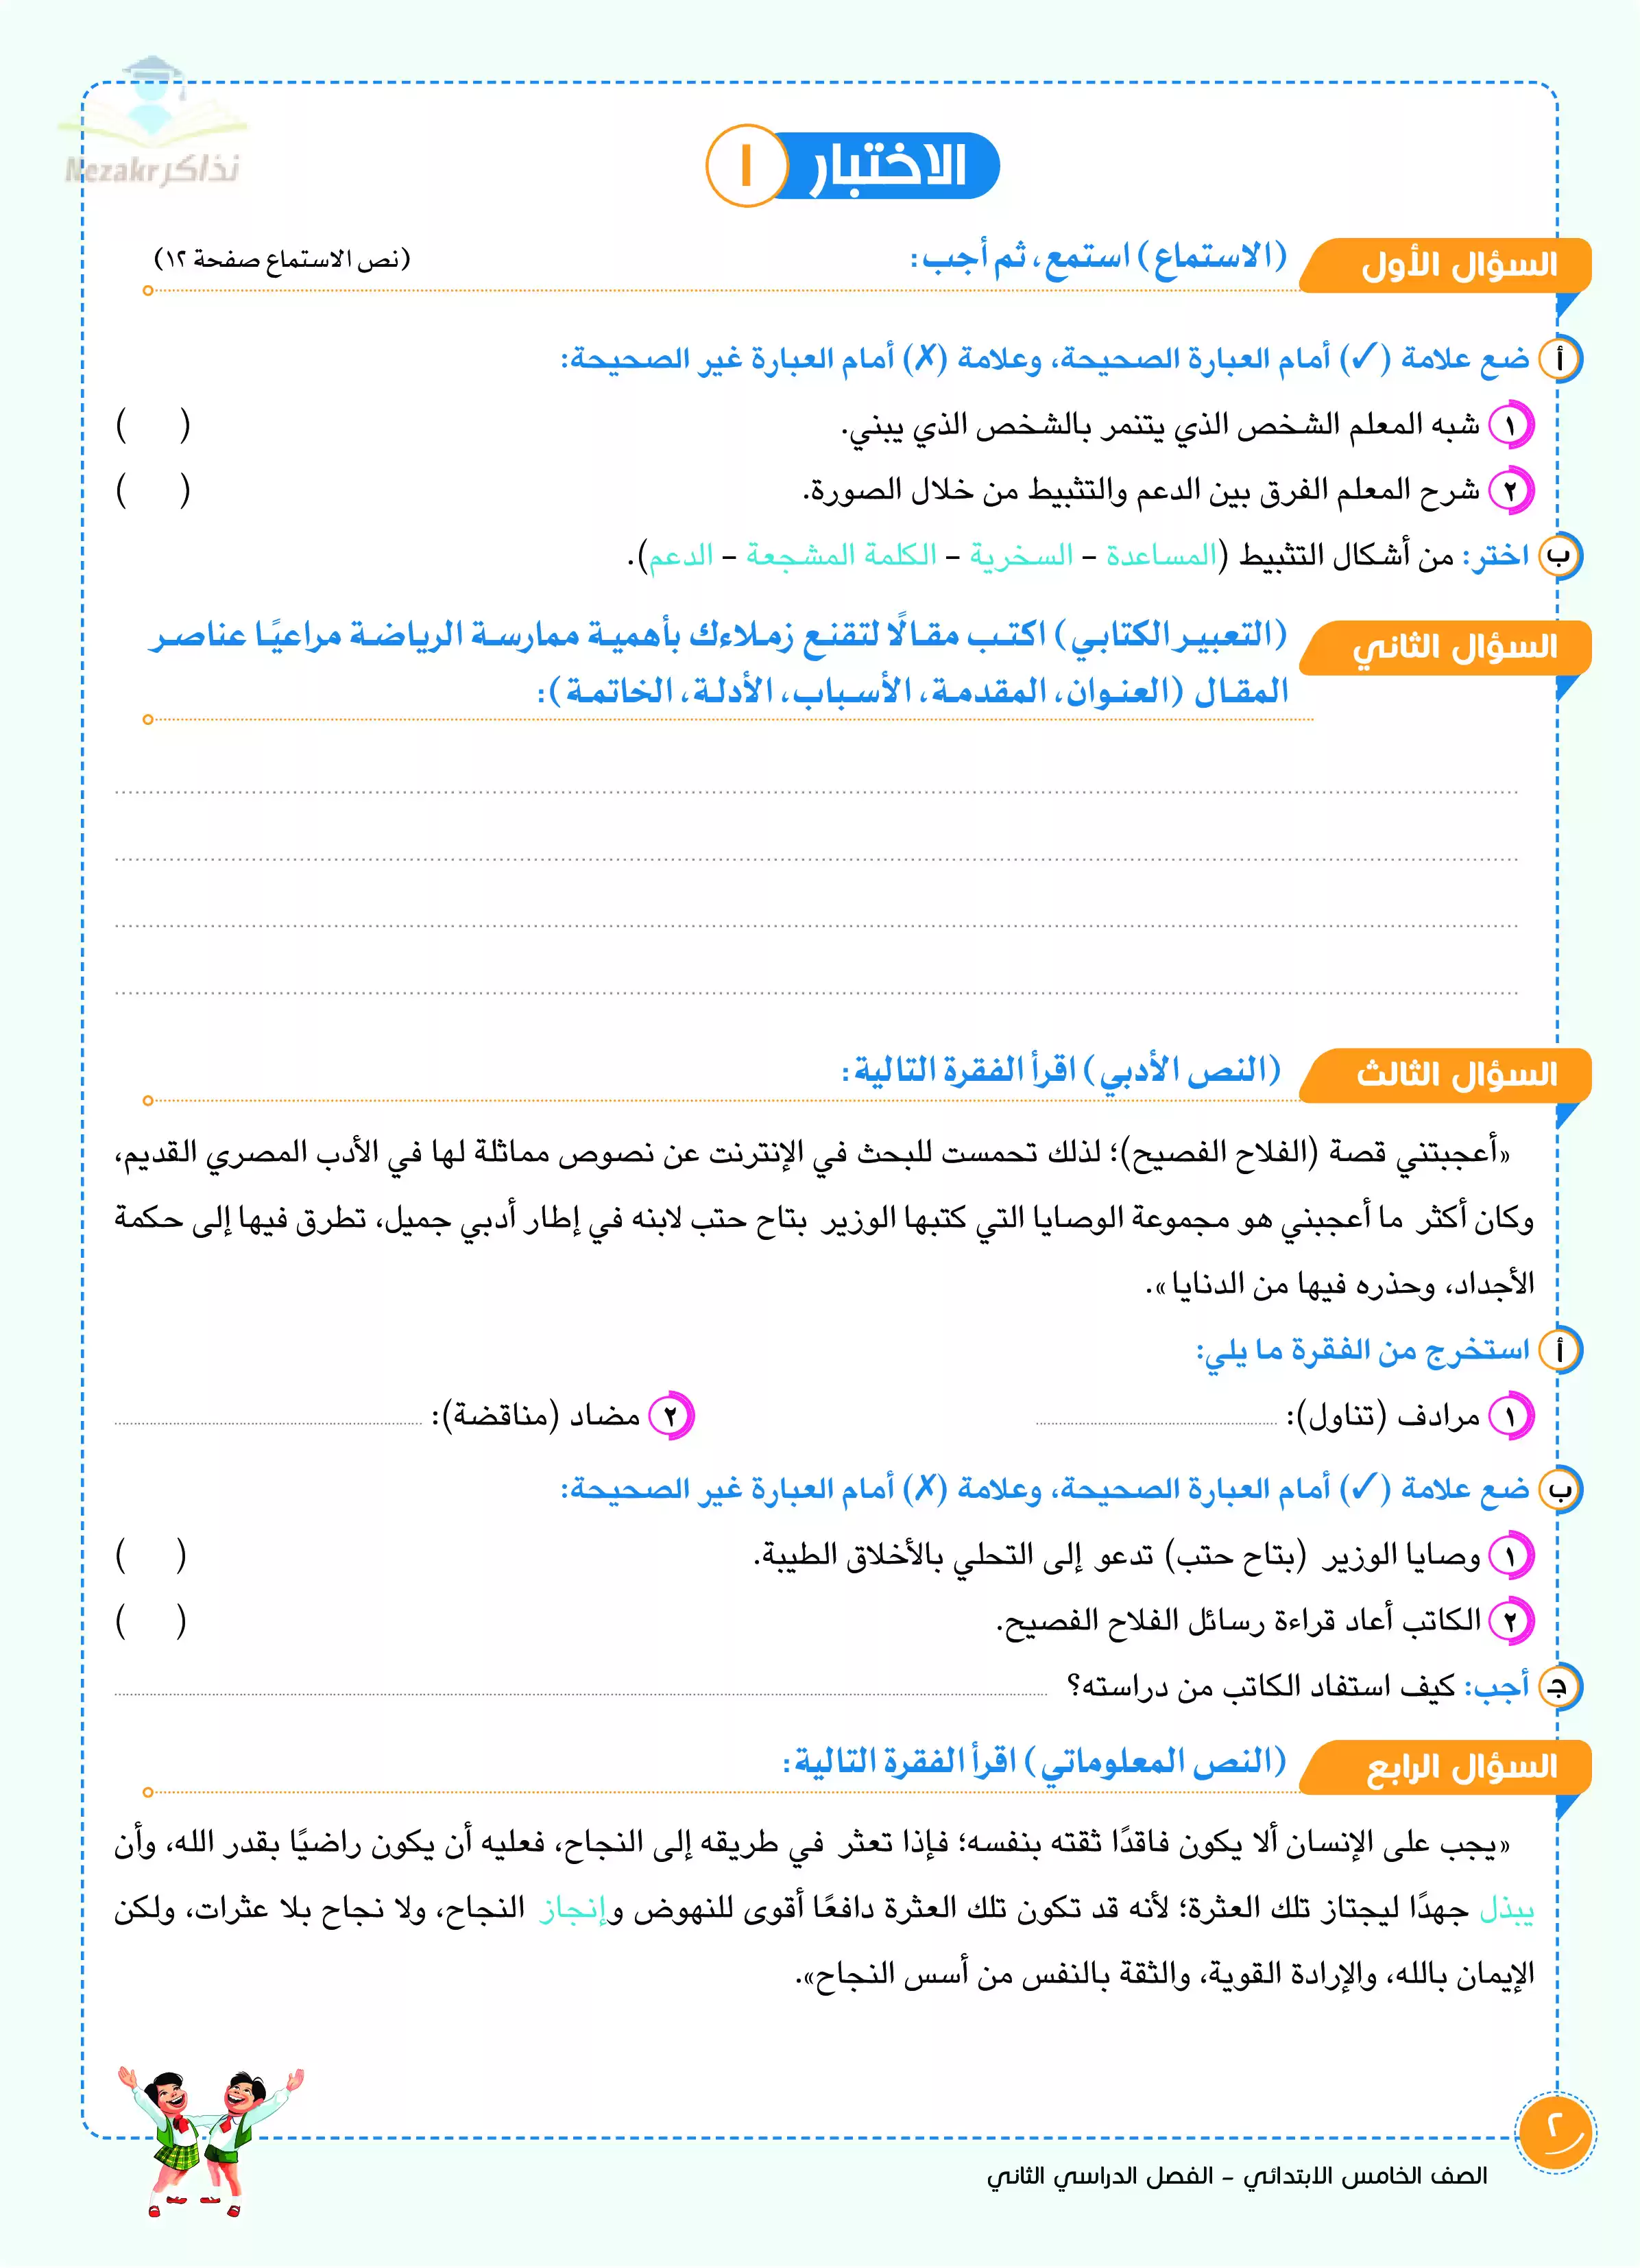 نذاكر Nezakr
الاختبار ١
السؤال الأول (الاستماع) استمع، ثم أجب: (نص الاستماع صفحة ١٢)
أ ضع علامة (✓) أمام العبارة الصحيحة، وعلامة (✗) أمام العبارة غير الصحيحة:
١ شبه المعلم الشخص الذي يتنمر بالشخص الذي يبني. ( )
٢ شرح المعلم الفرق بين الدعم والتثبيط من خلال الصورة. ( )
ب اختر: من أشكال التثبيط (المساعدة - السخرية - الكلمة المشجعة - الدعم).
السؤال الثاني (التعبير الكتابي) اكتب مقالًا لتقنع زملاءك بأهمية ممارسة الرياضة مراعيًا عناصر
المقال (العنوان، المقدمة، الأسباب، الأدلة، الخاتمة):
السؤال الثالث (النص الأدبي) اقرأ الفقرة التالية:
«أعجبتني قصة (الفلاح الفصيح)؛ لذلك تحمست للبحث في الإنترنت عن نصوص مماثلة لها في الأدب المصري القديم،
وكان أكثر ما أعجبني هو مجموعة الوصايا التي كتبها الوزير بتاح حتب لابنه في إطار أدبي جميل، تطرق فيها إلى حكمة
الأجداد، وحذره فيها من الدنايا».
أ استخرج من الفقرة ما يلي:
١ مرادف (تناول): ٢ مضاد (مناقضة):
ب ضع علامة (✓) أمام العبارة الصحيحة، وعلامة (✗) أمام العبارة غير الصحيحة:
١ وصايا الوزير (بتاح حتب) تدعو إلى التحلي بالأخلاق الطيبة. ( )
٢ الكاتب أعاد قراءة رسائل الفلاح الفصيح. ( )
ج أجب: كيف استفاد الكاتب من دراسته؟
السؤال الرابع (النص المعلوماتي) اقرأ الفقرة التالية:
«يجب على الإنسان ألا يكون فاقدًا ثقته بنفسه؛ فإذا تعثر في طريقه إلى النجاح، فعليه أن يكون راضيًا بقدر الله، وأن
يبذل جهدًا ليجتاز تلك العثرة؛ لأنه قد تكون تلك العثرة دافعًا أقوى للنهوض وإنجاز النجاح، ولا نجاح بلا عثرات، ولكن
الإيمان بالله، والإرادة القوية، والثقة بالنفس من أسس النجاح».
٢
الصف الخامس الابتدائي - الفصل الدراسي الثاني